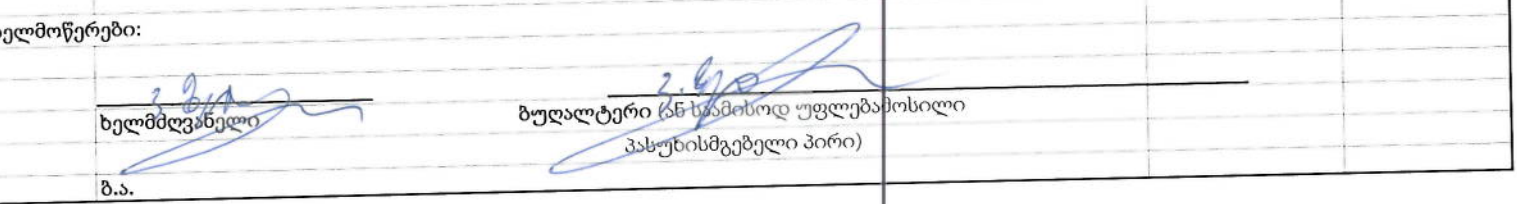 ელმოწერები:
ხელმძღვანელი
ბუღალტერი (ან საამისოდ უფლებამოსილი
პასუხისმგებელი პირი)
ბ.ა.